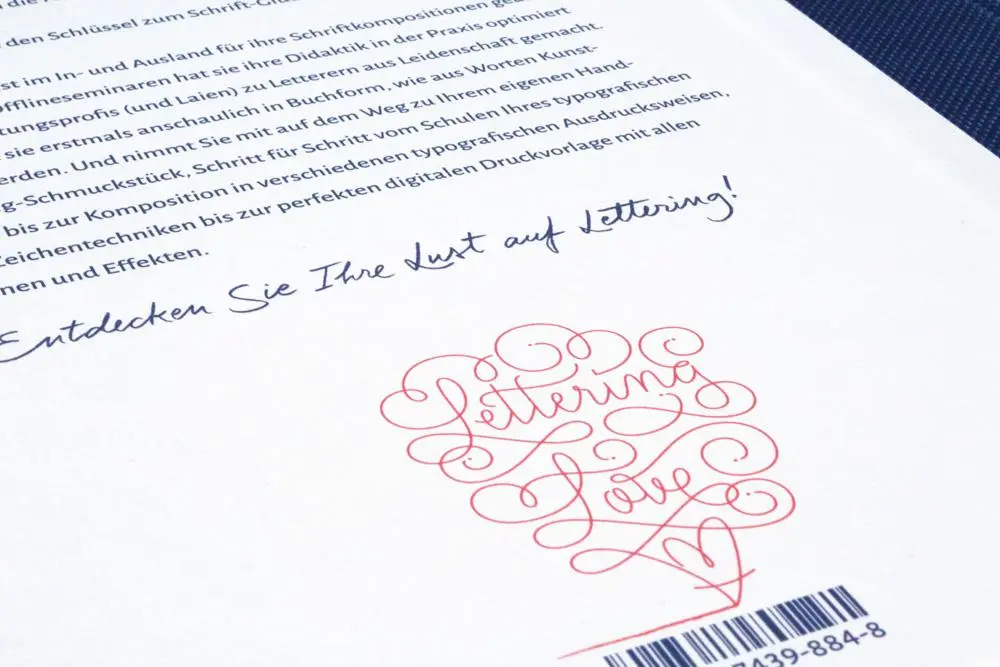 den Schlüssel zum Schrift-
im In- und Ausland für ihre Schriftkompositionen
Offlineseminaren hat sie ihre Didaktik in der Praxis optimiert
tungsprofis (und Laien) zu Letterern aus Leidenschaft gemacht.
sie erstmals anschaulich in Buchform, wie aus Worten Kunst-
erden. Und nimmt Sie mit auf dem Weg zu Ihrem eigenen Hand-
g-Schmuckstück, Schritt für Schritt vom Schulen Ihres typografischen
bis zur Komposition in verschiedenen typografischen Ausdrucksweisen,
Zeichentechniken bis zur perfekten digitalen Druckvorlage mit allen
nen und Effekten.
Entdecken Sie Ihre Lust auf Lettering!
Lettering
Love
7439-884-8